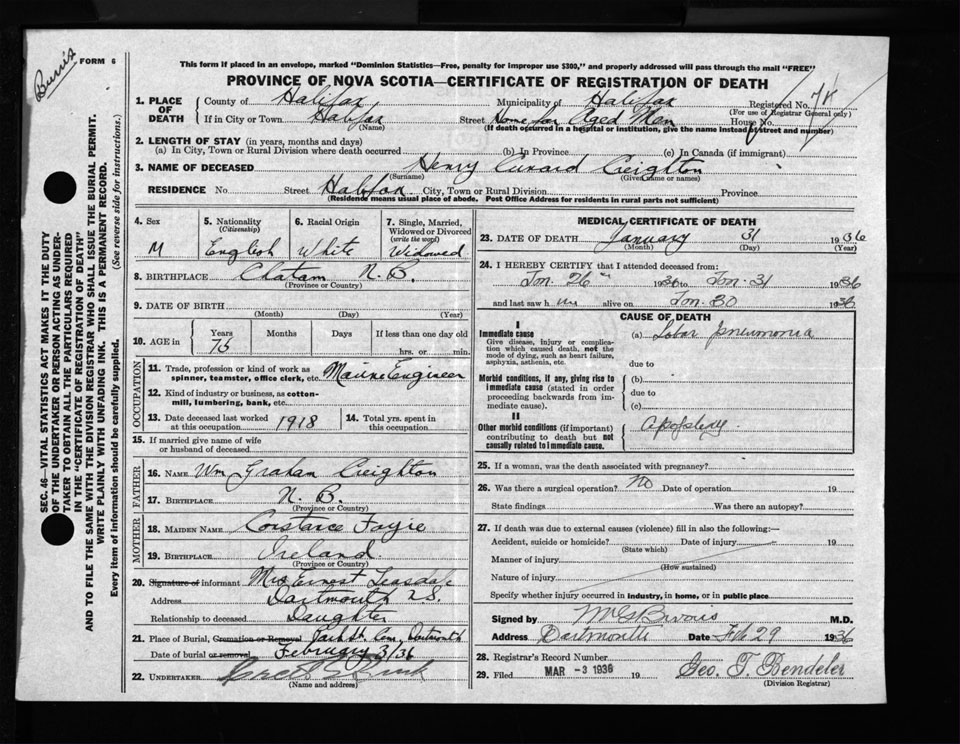 Burris
FORM 6
This form if placed in an envelope, marked "Dominion Statistics—Free, penalty for improper use $300," and properly addressed will pass through the mail "FREE"
PROVINCE OF NOVA SCOTIA—CERTIFICATE OF REGISTRATION OF DEATH
SEC. 46—VITAL STATISTICS ACT MAKES IT THE DUTY
OF THE UNDERTAKER OR PERSON ACTING AS UNDER-
TAKER TO OBTAIN ALL THE PARTICULARS REQUIRED
IN THE "CERTIFICATE OF REGISTRATION OF DEATH"
AND TO FILE THE SAME WITH THE DIVISION REGISTRAR WHO SHALL ISSUE THE BURIAL PERMIT.
WRITE PLAINLY WITH UNFADING INK. THIS IS A PERMANENT RECORD.
Every item of information should be carefully supplied. (See reverse side for instructions.)
1. PLACE OF DEATH
County of Halifax Municipality of Halifax Registered No.
(For use of Registrar General only)
If in City or Town Halifax Street Home for Aged Men House No.
(Name) (If death occurred in a hospital or institution, give the name instead of street and number)
2. LENGTH OF STAY (in years, months and days)
(a) In City, Town or Rural Division where death occurred (b) In Province (c) In Canada (if immigrant)
3. NAME OF DECEASED Henry Cunard Creighton
(Surname) (Given name or names)
RESIDENCE No Street Halifax City, Town or Rural Division Province
(Residence means usual place of abode. Post Office Address for residents in rural parts not sufficient)
4. Sex 5. Nationality 6. Racial Origin 7. Single, Married,
(Citizenship) Widowed or Divorced
(write the word)
M English White Widowed
8. BIRTHPLACE Chatam N. B.
(Province or Country)
9. DATE OF BIRTH
(Month) (Day) (Year)
10. AGE in Years Months Days If less than one day old
75 hrs. or min.
OCCUPATION
11. Trade, profession or kind of work as
spinner, teamster, office clerk, etc. Marine Engineer
12. Kind of industry or business, as cotton-
mill, lumbering, bank, etc.
13. Date deceased last worked
at this occupation 1918
14. Total yrs. spent in
this occupation
15. If married give name of wife
or husband of deceased
FATHER
16. NAME Wm Graham Creighton
17. BIRTHPLACE N. B.
(Province or Country)
MOTHER
18. MAIDEN NAME Constance
19. BIRTHPLACE Ireland
(Province or Country)
20. Signature of informant Mrs Ernest Teasdale
Address Dartmouth N.S.
Relationship to deceased Daughter
21. Place of Burial, Cremation or Removal Dartmouth
Date of burial or removal February 3/36
22. UNDERTAKER
(Name and address)
MEDICAL CERTIFICATE OF DEATH
23. DATE OF DEATH January 31 1936
(Month) (Day) (Year)
24. I HEREBY CERTIFY that I attended deceased from:
Jan. 26th 1936 to Jan. 31 1936
and last saw him alive on Jan. 30 1936
CAUSE OF DEATH
I
Immediate cause (a) Lobar pneumonia
Give disease, injury or complica-
tion which caused death, not the
mode of dying, such as heart failure,
asphyxia, asthenia, etc.
due to
Morbid conditions, if any, giving rise to
immediate cause (stated in order
proceeding backwards from im-
mediate cause).
(b)
due to
(c)
II
Other morbid conditions (if important)
contributing to death but not
causally related to immediate cause.
apoplexy
25. If a woman, was the death associated with pregnancy?
26. Was there a surgical operation? No Date of operation 19
State findings Was there an autopsy?
27. If death was due to external causes (violence) fill in also the following:—
Accident, suicide or homicide? Date of injury 19
(State which)
Manner of injury
(How sustained)
Nature of injury
Specify whether injury occurred in industry, in home, or in public place
Signed by M G Burris M.D.
Address Dartmouth Date Feb 29 1936
28. Registrar's Record Number
29. Filed MAR -3 1936 19 Geo. T. Bendeler
(Division Registrar)